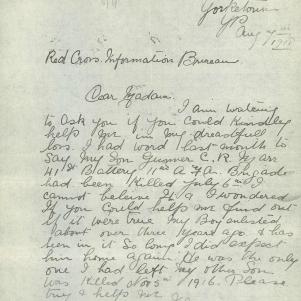 Yorketown
YP
Aug 7th
Red Cross Information Bureau
Dear Madam.
I am writing
to ask you if you could Kindley
help me in my dreadfull
loss. I had word last month to
say my Son Gunner C. R.
41st Battery 11th A.F.A. Brigade
had been Killed July 6th I
cannot beleive it & I wondered
If you could help me find out
if it were true my Boy enlisted
about over three years ago & has
been in it so long I did expect
him home again. He was the only
one I had left my other Son
was Killed Nov 5th 1916. Please
try & help me